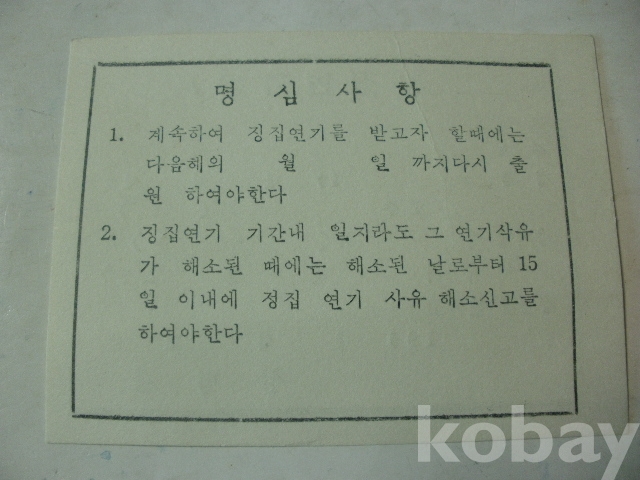 명 심 사 항
1. 계속하여 징집연기를 받고자 할때에는
다음해의 월 일 까지다시 출
원 하여야한다
2. 징집연기 기간내 일지라도 그 연기삭유
가 해소된 때에는 해소된 날로부터 15
일 이내에 정집 연기 사유 해소신고를
하여야한다
kobay